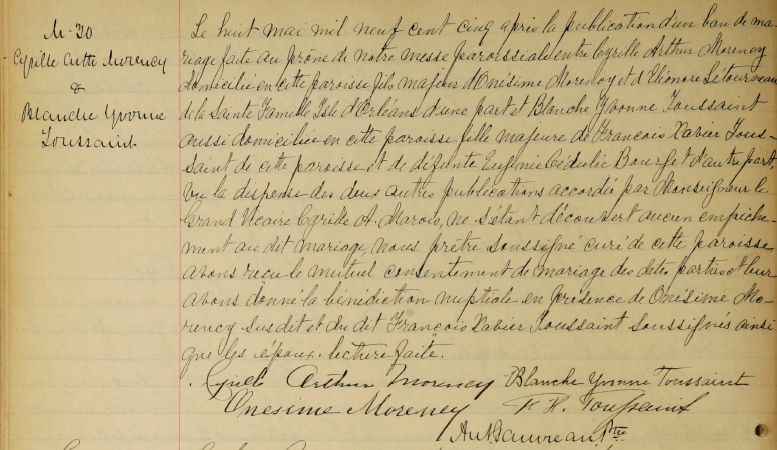 M-30
Cyrille Arthur Morency
&
Blanche Yvonne
Toussaint
Le huit mai mil neuf cent cinq après la publication d'un ban de ma-
riage faite au prône de notre messe paroissiale entre Cyrille Arthur Morency
domicilié en cette paroisse fils majeur d'Onésime Morency et d'Eléonore Létourneau
de la Sainte Famille Isle d'Orléans d'une part et Blanche Yvonne Toussaint
aussi domiciliée en cette paroisse fille majeure de François Xavier Tous-
saint de cette paroisse et de défunte Eugénie Cédulie Bourget d'autre part,
vu la dispense des deux autres publications accordée par Monseigneur le
Grand Vicaire Cyrille A. Marois, ne s'étant découvert aucun empêche-
ment au dit mariage, nous prêtre soussigné curé de cette paroisse
avons reçu le mutuel consentement de mariage des dites parties et leur
avons donné la bénédiction nuptiale en présence de Onésime Mo-
rency susdit et du dit François Xavier Toussaint soussignés ainsi
que les époux. lecture faite.
Cyrille Arthur Morency Blanche Yvonne Toussaint
Onesime Morency F. X. Toussaint
Gauvreau Ptre